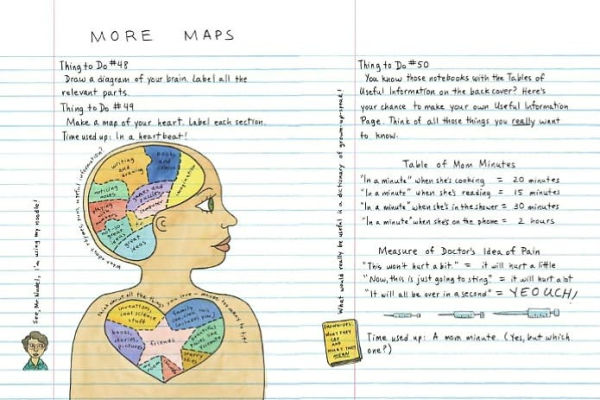 MORE MAPS
Thing to Do #48
Draw a diagram of your brain. Label all the
relevant parts.
Thing to Do #49
Make a map of your heart. Label each section.
Time used up: In a heartbeat!
What about rhymes with useful information?
writing
and
drawing
imagination
noticing
games and
puzzles
computer
playing
with
great
ideas
See, Mr. I'm using my noodle!
Think about all the things you love
inventions
and science
stuff
family
books,
stories,
pictures
friends
beautiful
places
Thing to Do #50
You know those notebooks with the Tables of
Useful Information on the back cover? Here's
your chance to make your own Useful Information
Page. Think of all those things you really want
to know.
What would really be useful is a dictionary of grown-up-speak!
Table of Mom Minutes
"In a minute" when she's cooking = 20 minutes
"In a minute" when she's reading = 15 minutes
"In a minute" when she's in the shower = 30 minutes
"In a minute" when she's on the phone = 2 hours
Measure of Doctor's Idea of Pain
"This won't hurt a bit." = it will hurt a little
"Now, this is just going to sting" = it will hurt a lot
"It will all be over in a second" = YEOUCH!
GROWN-UPS:
WHAT THEY
SAY
AND
WHAT THEY
MEAN
Time used up: A mom minute. (Yes, but which
one?)